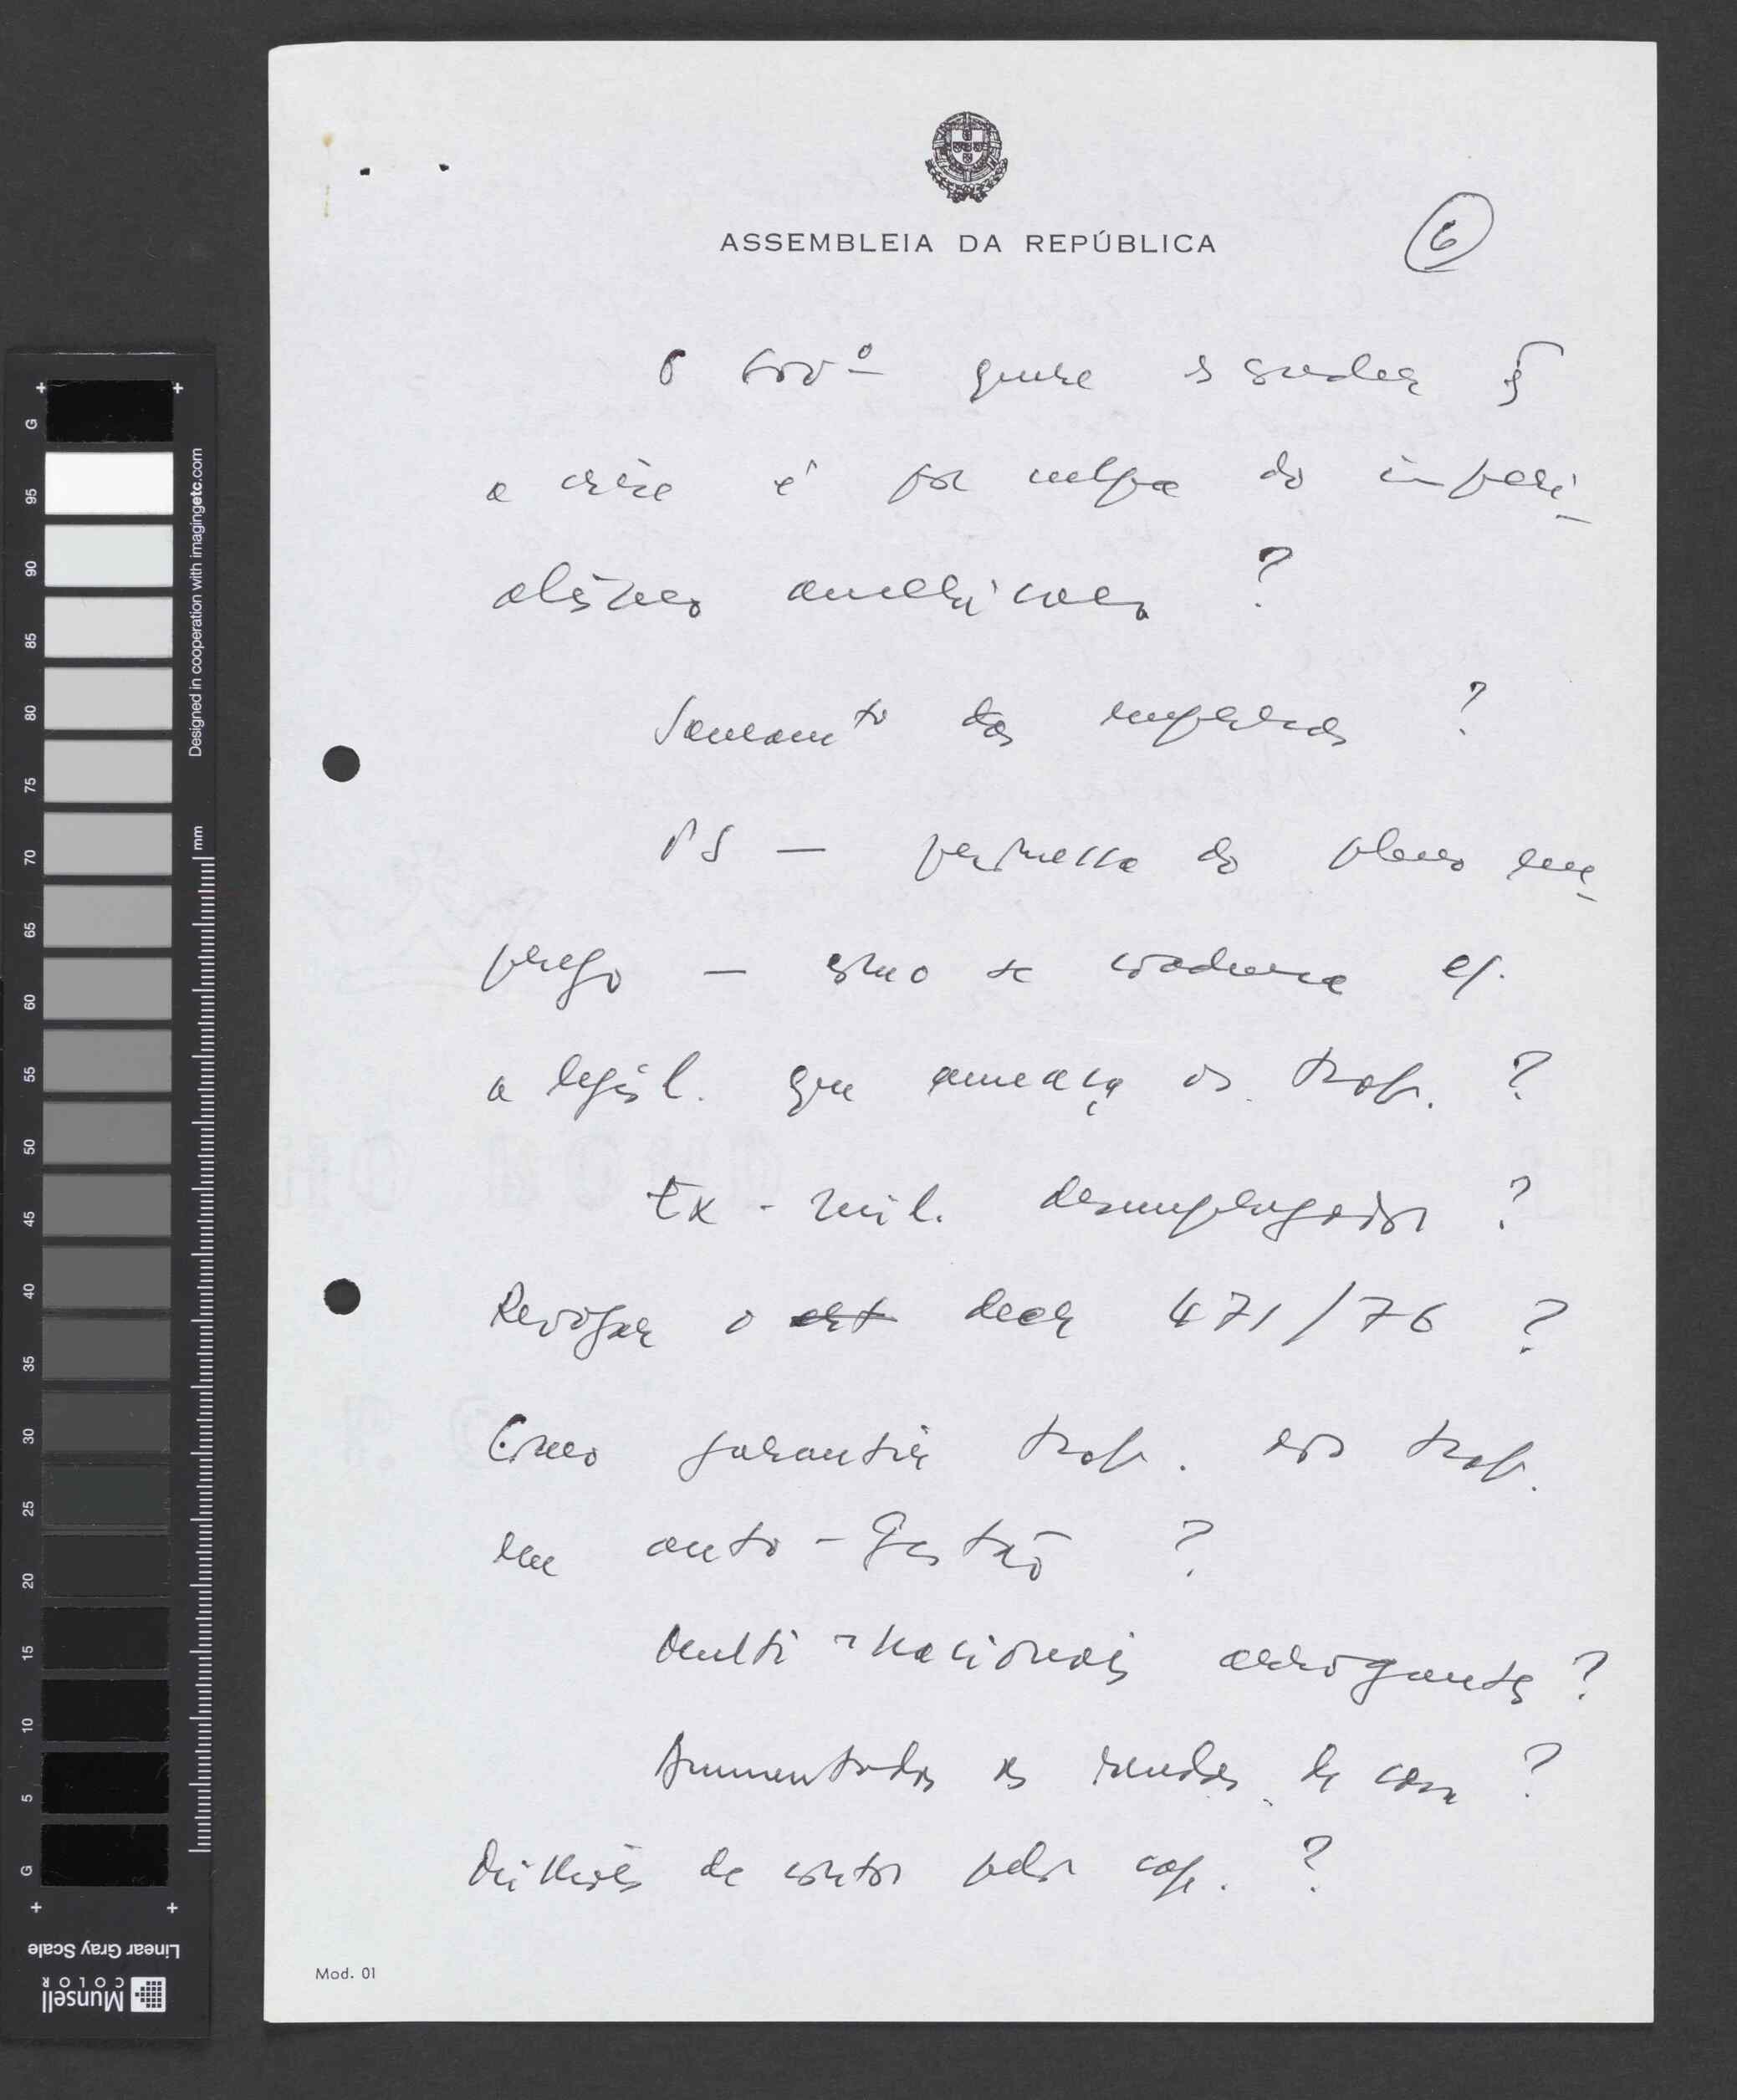 ASSEMBLEIA DA REPÚBLICA
6
O Govº quer esconder q
a crise é por culpa do imperi-
alismo americano ?
Saneamto das empresas ?
PS — promessa do pleno em-
prego — como se coaduna c/
a legisl. que ameaça os trab. ?
Ex-mil. desempregados ?
Revogar o decr 471/76 ?
Como garantir trab. aos trab.
em auto-Gestão ?
Multi-nacionais arrogantes ?
Aumentadas as rendas de casa ?
Milhões de contos pelos cap. ?
Mod. 01
+ +
G
95
90
85
80
75
70
65
60
55
50
45
40
35
30
25
20
15
10
5
G
+ +
mm
Designed in cooperation with imagingetc.com
Linear Gray Scale
Munsell
COLOR